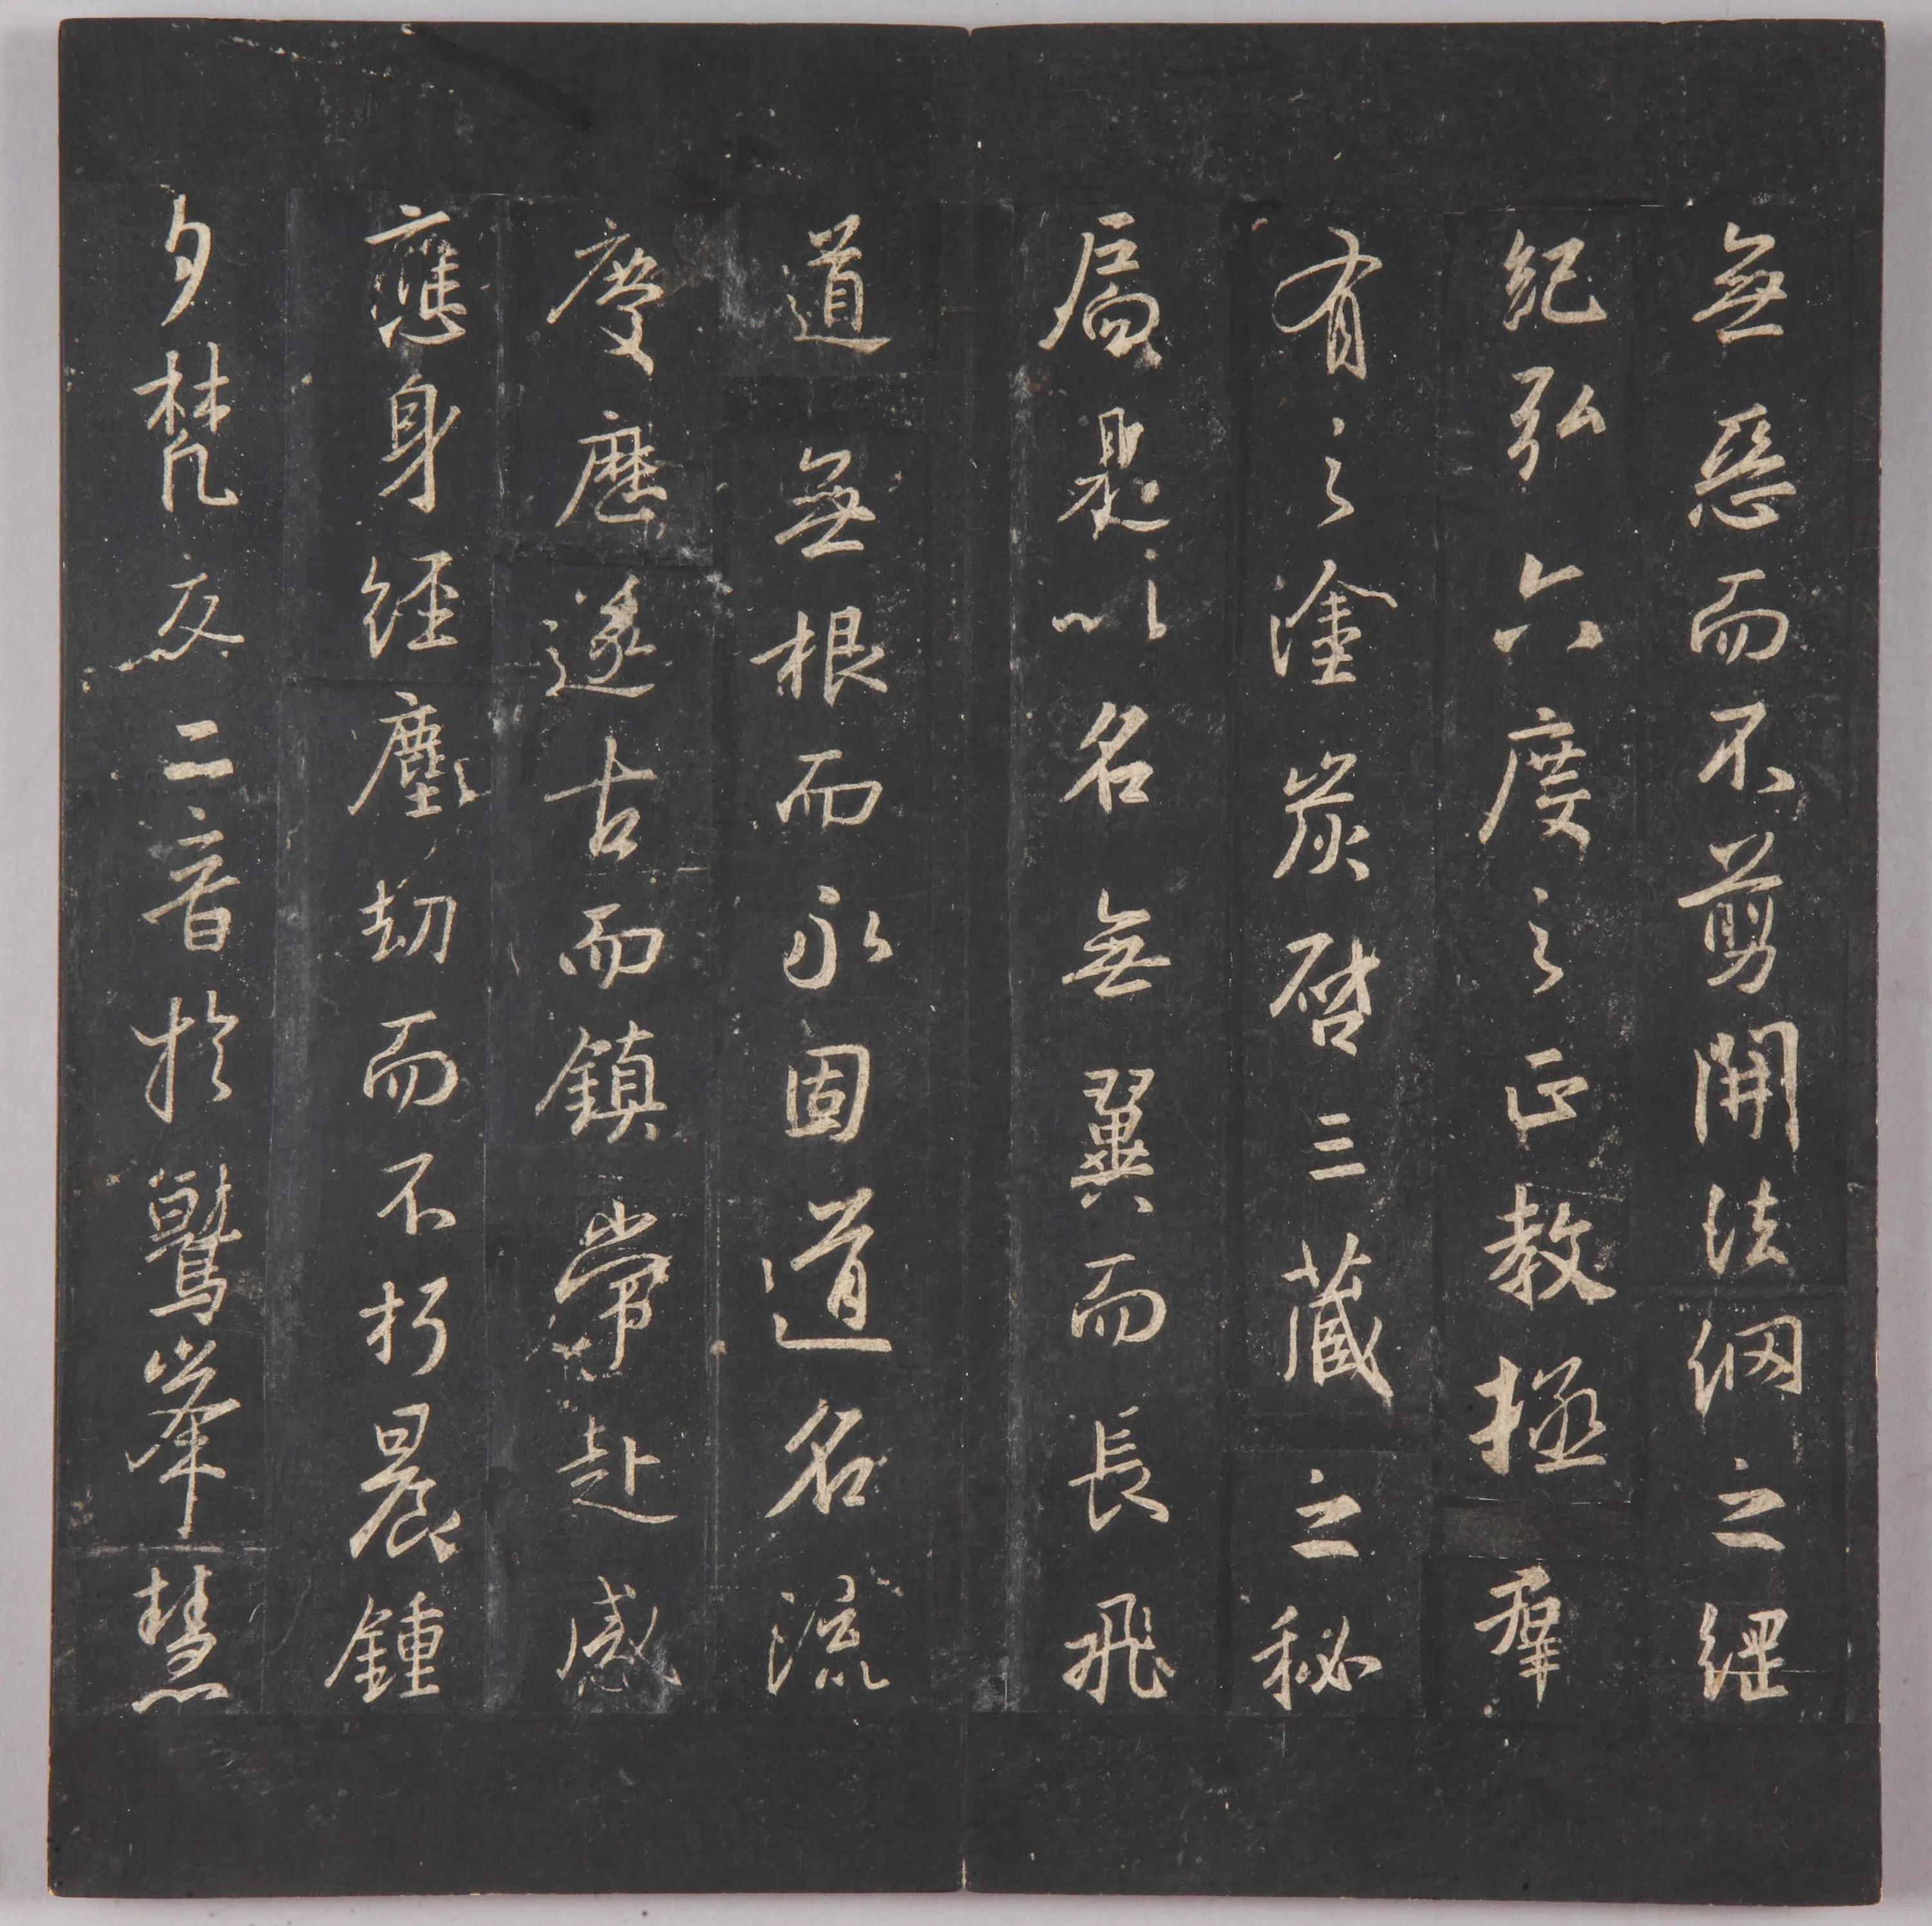 無惡而不剪開法網之綱
紀弘六度之正教拯群
有之塗炭啓三藏之秘
扃是以名無翼而長飛
道無根而永固道名流
慶歷遂古而鎮常赴感
應身經塵劫而不朽晨鍾
夕梵交二音於鷲峯慧